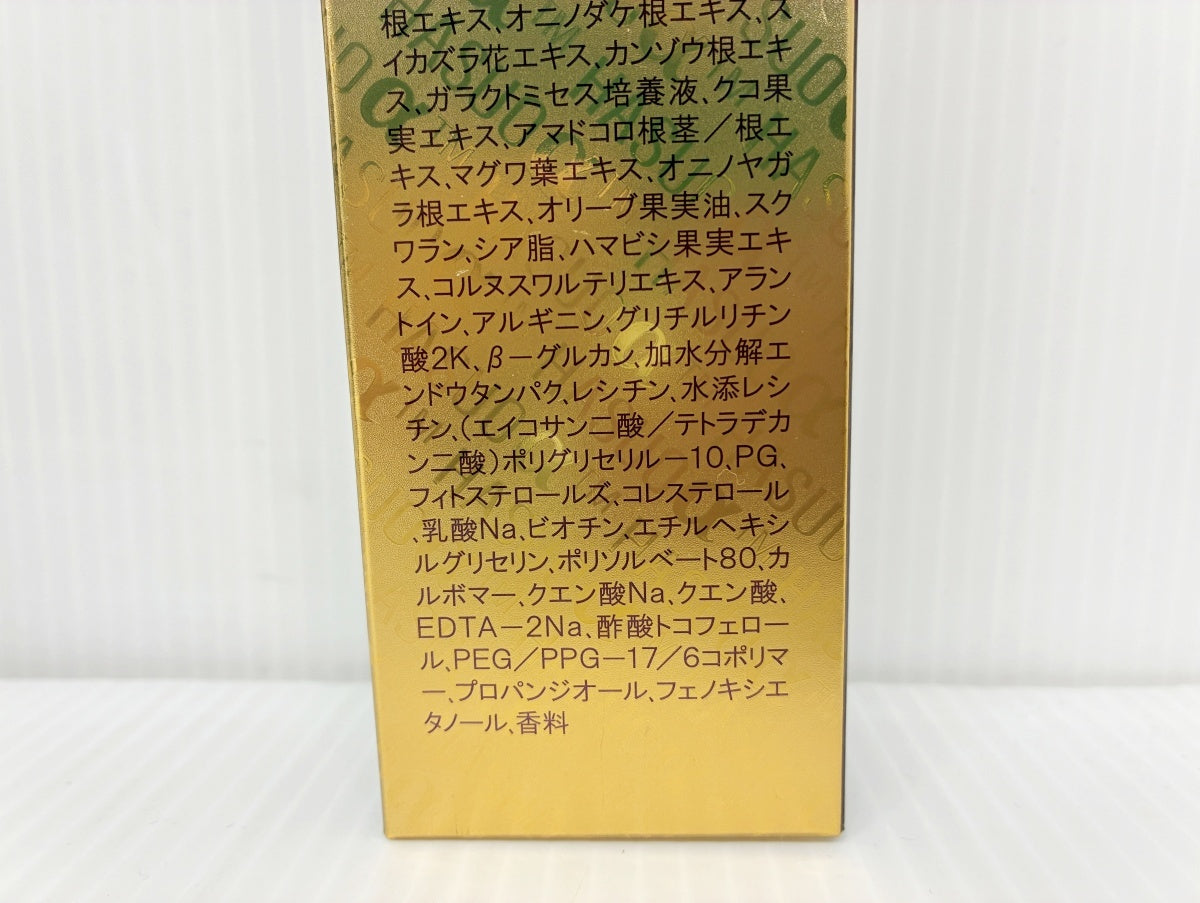 根エキス、オニノダケ根エキス、ス
イカズラ花エキス、カンゾウ根エキ
ス、ガラクトミセス培養液、クコ果
実エキス、アマドコロ根茎／根エ
キス、マグワ葉エキス、オニノヤガ
ラ根エキス、オリーブ果実油、スク
ワラン、シア脂、ハマビシ果実エキ
ス、コルヌスワルテリエキス、アラン
トイン、アルギニン、グリチルリチン
酸2K、β－グルカン、加水分解エ
ンドウタンパク、レシチン、水添レシ
チン、(エイコサン二酸／テトラデカ
ン二酸)ポリグリセリル－10、PG、
フィトステロールズ、コレステロール
、乳酸Na、ビオチン、エチルヘキシ
ルグリセリン、ポリソルベート80、カ
ルボマー、クエン酸Na、クエン酸、
EDTA－2Na、酢酸トコフェロー
ル、PEG／PPG－17／6コポリマ
ー、プロパンジオール、フェノキシエ
タノール、香料